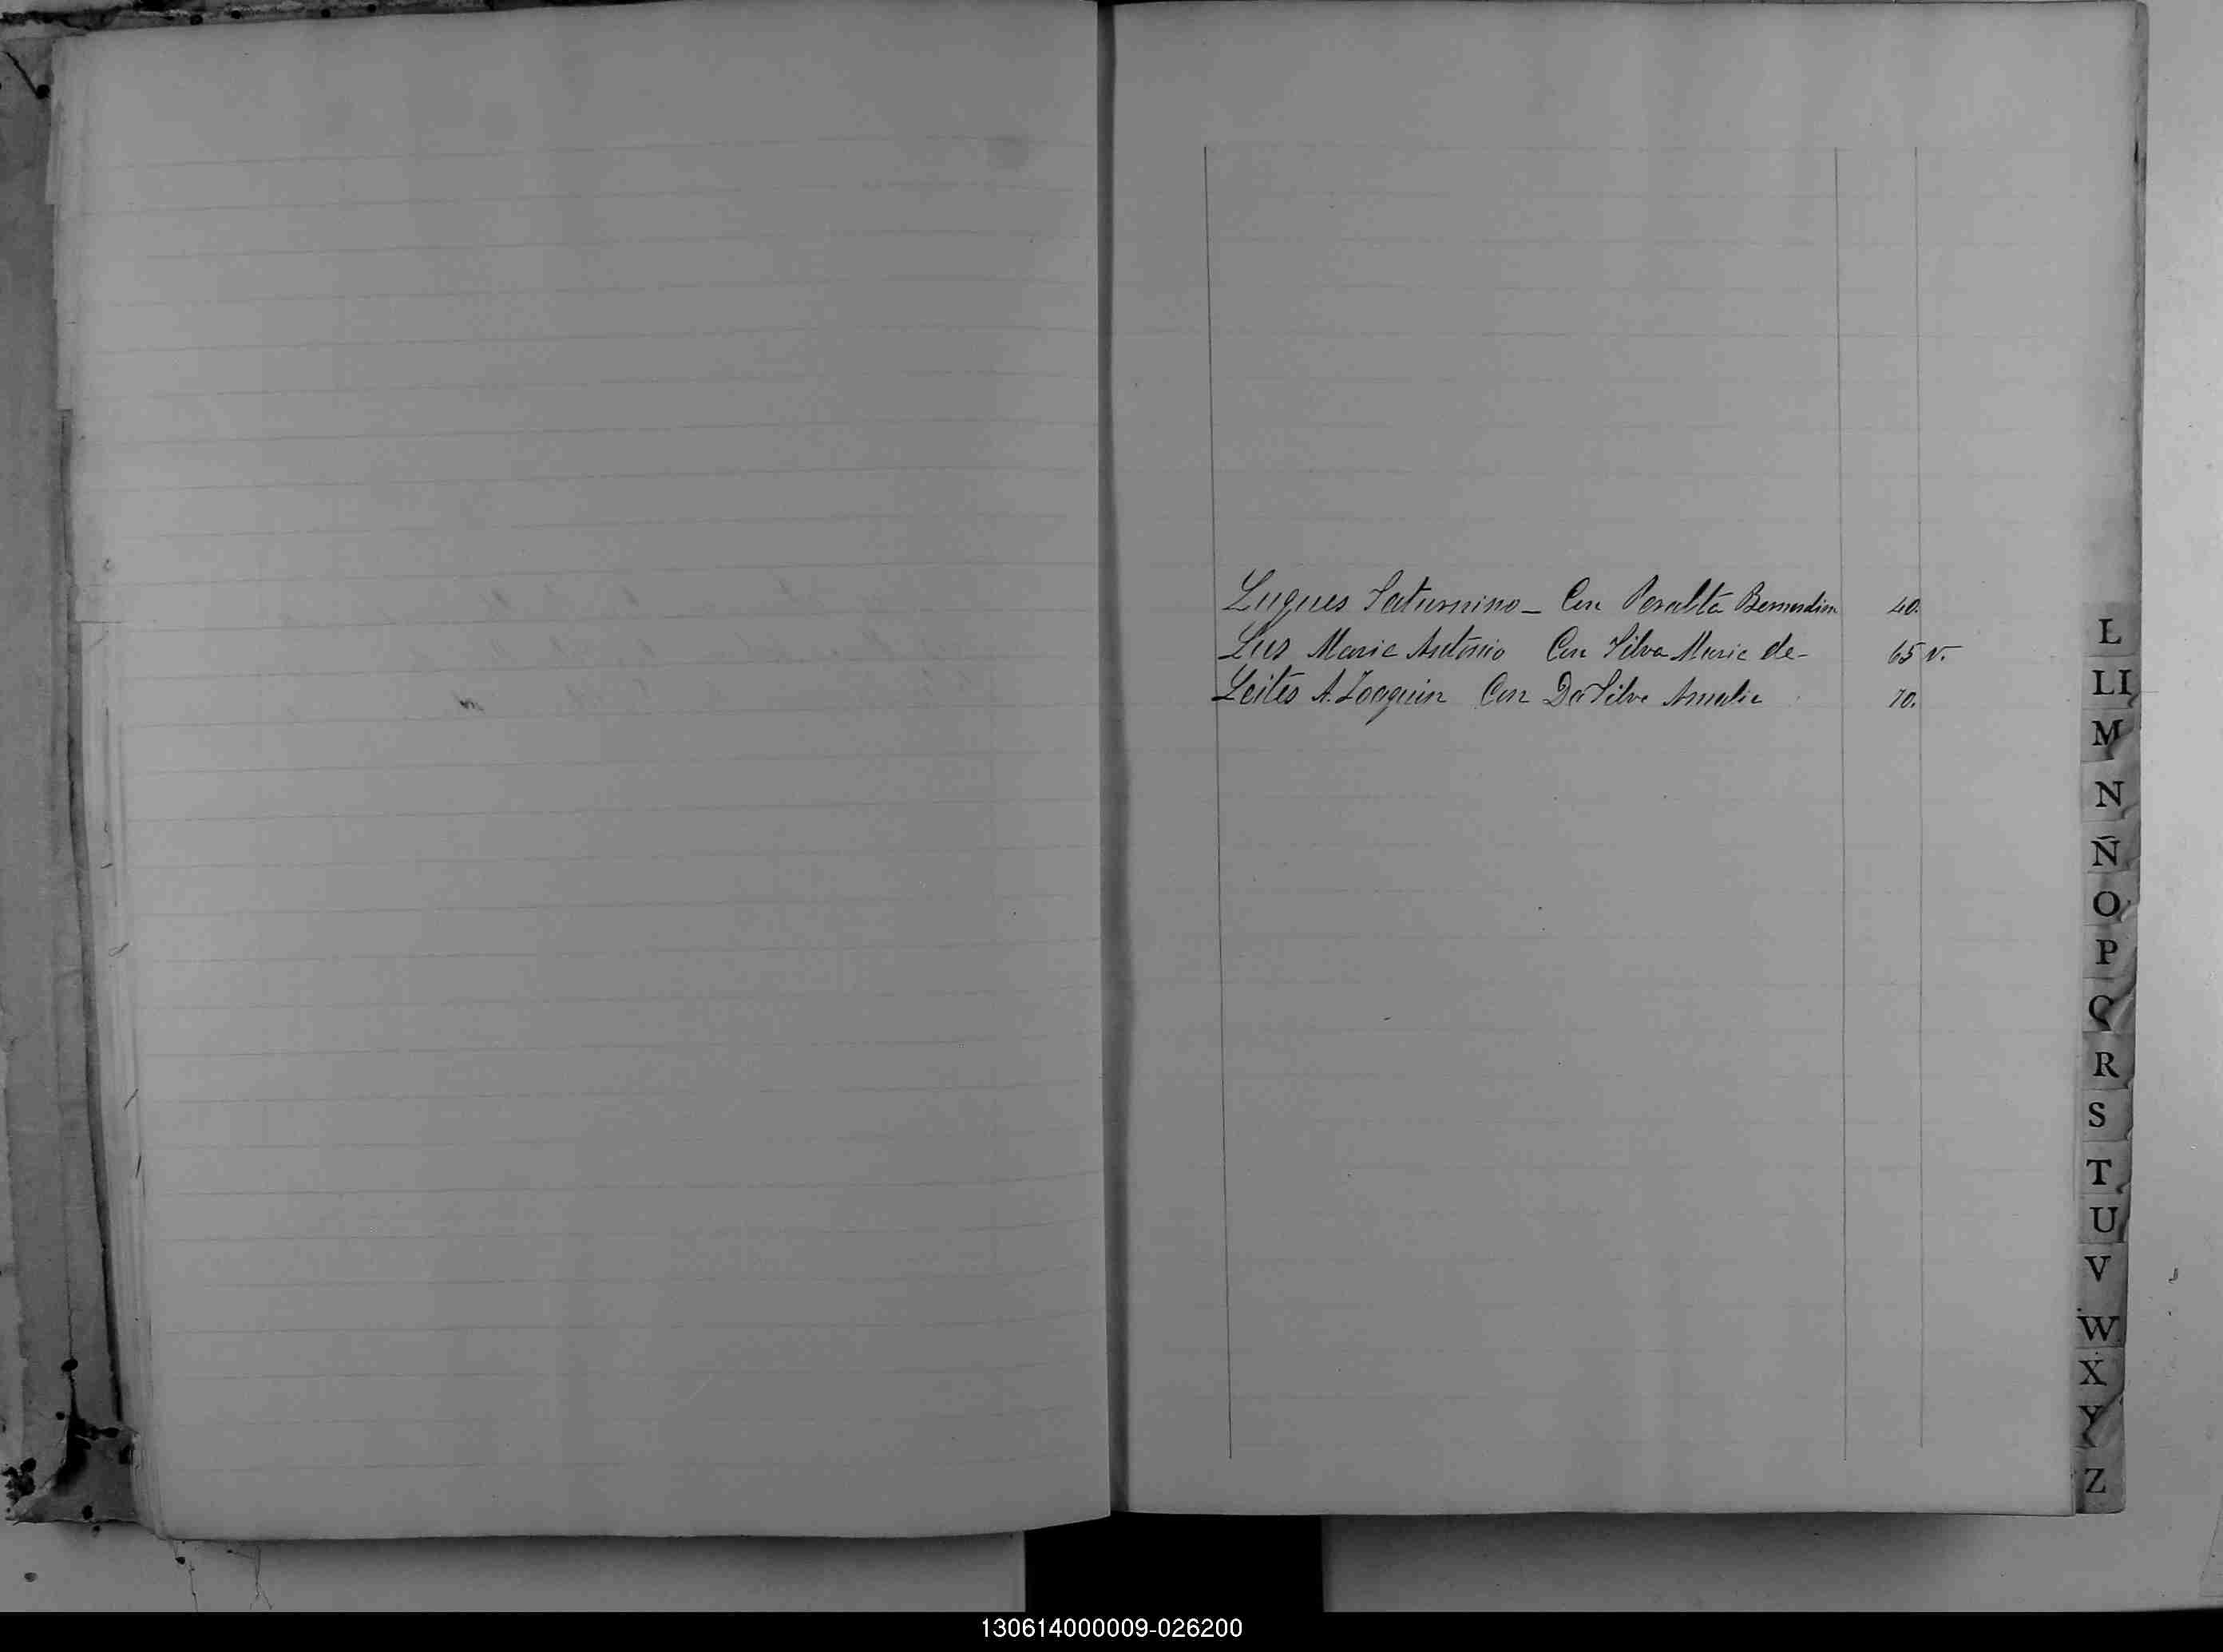 Luques Saturnino - Con Peralta Bernardina 40.
Luis Maria Antonio Con Silva Maria de - 65 v.
Leites A. Joaquin Con Da Silva Amalia 70.
L
LI
M
N
Ñ
O
P
Q
R
S
T
U
V
W
X
Y
Z
130614000009-026200